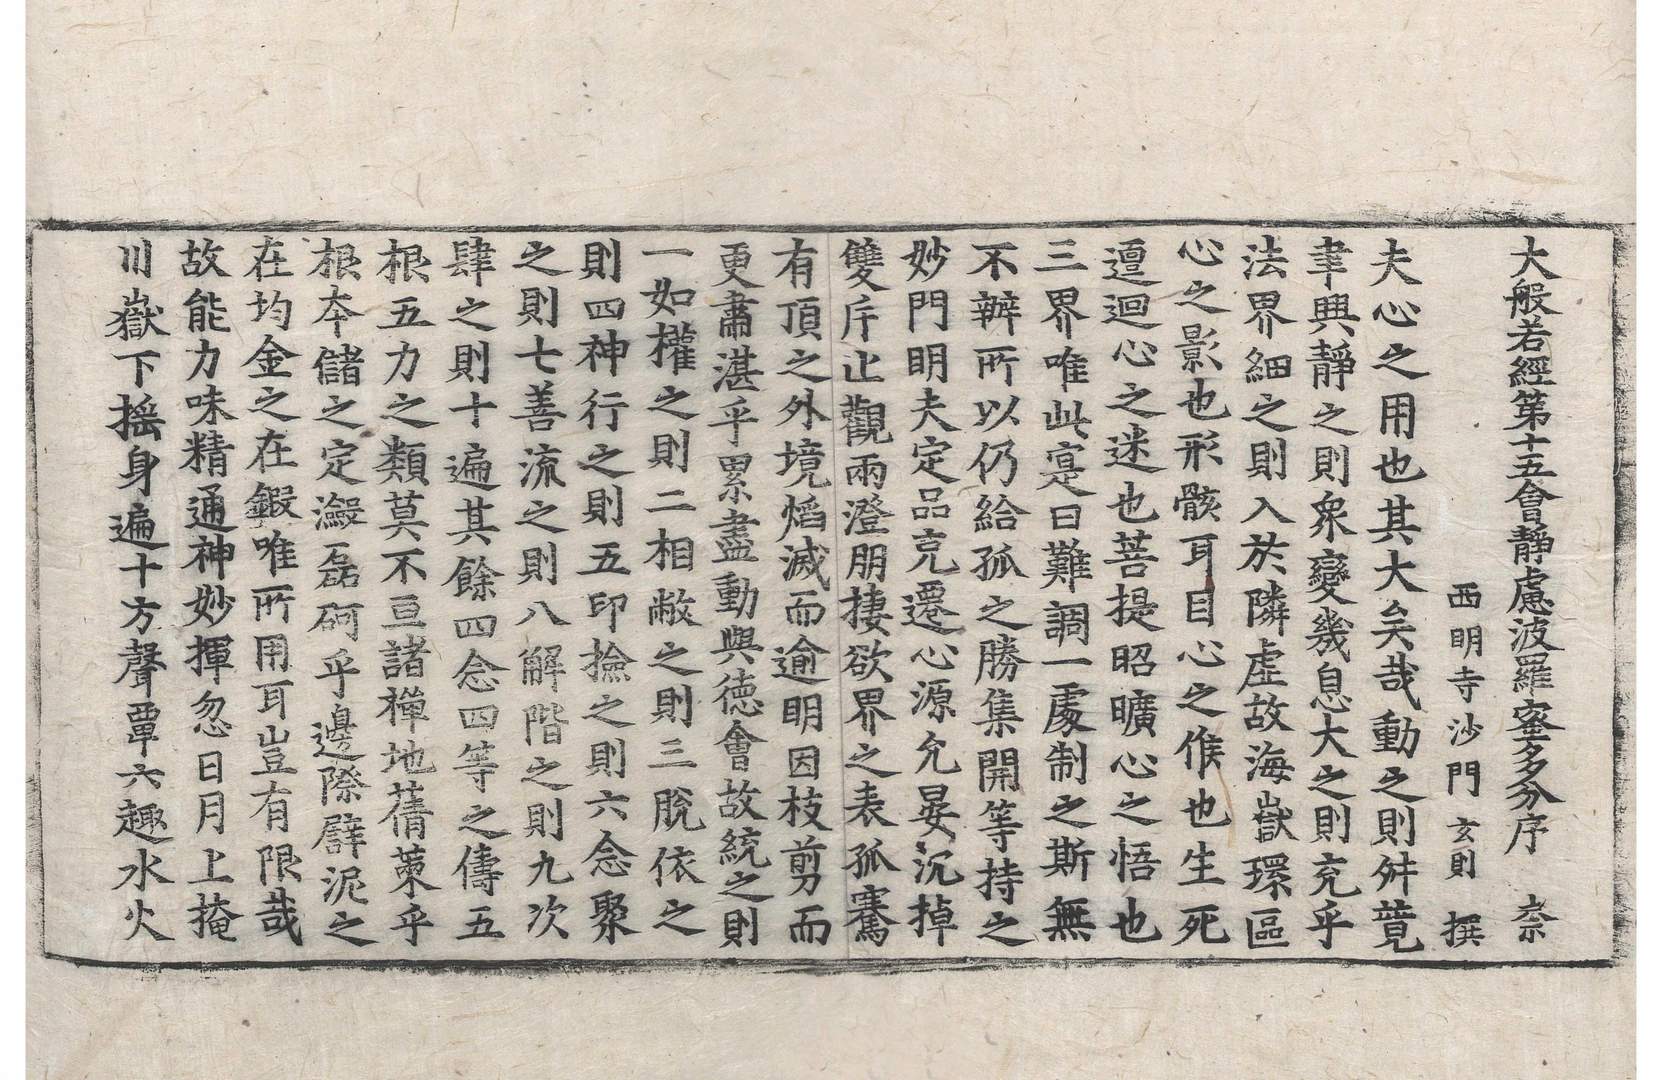 大般若經第十五會靜慮波羅蜜多分序 奈
西明寺沙門玄則 撰
夫心之用也其大矣哉動之則舛競
聿興靜之則衆變幾息大之則充乎
法界細之則入於隣虛故海嶽環區
心之影也形骸耳目心之候也生死
邅迴心之迷也菩提昭曠心之悟也
三界唯此寔曰難調一處制之斯無
不辦所以仍給孤之勝集開等持之
妙門明夫定品克遷心源允晏沉掉
雙斥止觀兩澄朋棲欲界之表孤騫
有頂之外境焰滅而逾明因枝剪而
更肅湛乎累盡動與德會故統之則
一如權之則二相敝之則三脫依之
則四神行之則五印撿之則六念聚
之則七善流之則八解階之則九次
肆之則十遍其餘四念四等之儔五
根五力之類莫不亘諸禪地蒨䔧乎
根本儲之定瀲磊砢乎邊際礕泥之
在均金之在鍜唯所用耳豈有限哉
故能力味精通神妙揮忽日月上掩
川嶽下搖身遍十方聲覃六趣水火